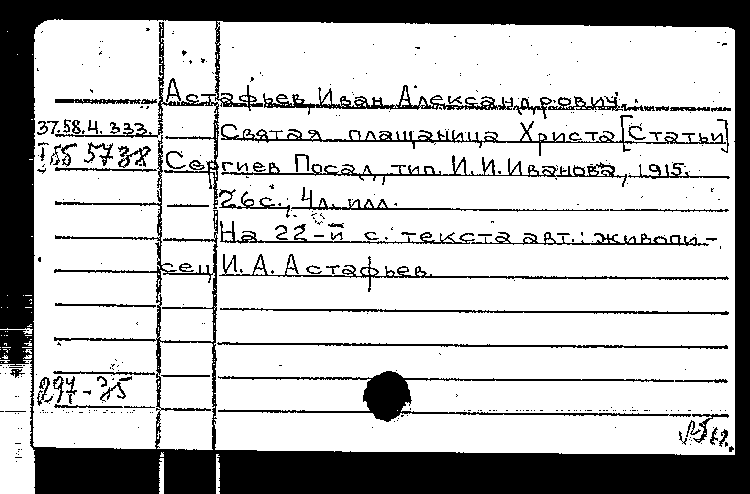 Астафьев, Иван Александрович.
37.58.4.333. Святая плащаница Христа [Статьи]
I55 5738 Сергиев Посад, тип. И.И.Иванова, 1915.
26с., 4л. илл.
На 22-й с. текста авт.: живопи-
сец И. А. Астафьев.
297-35